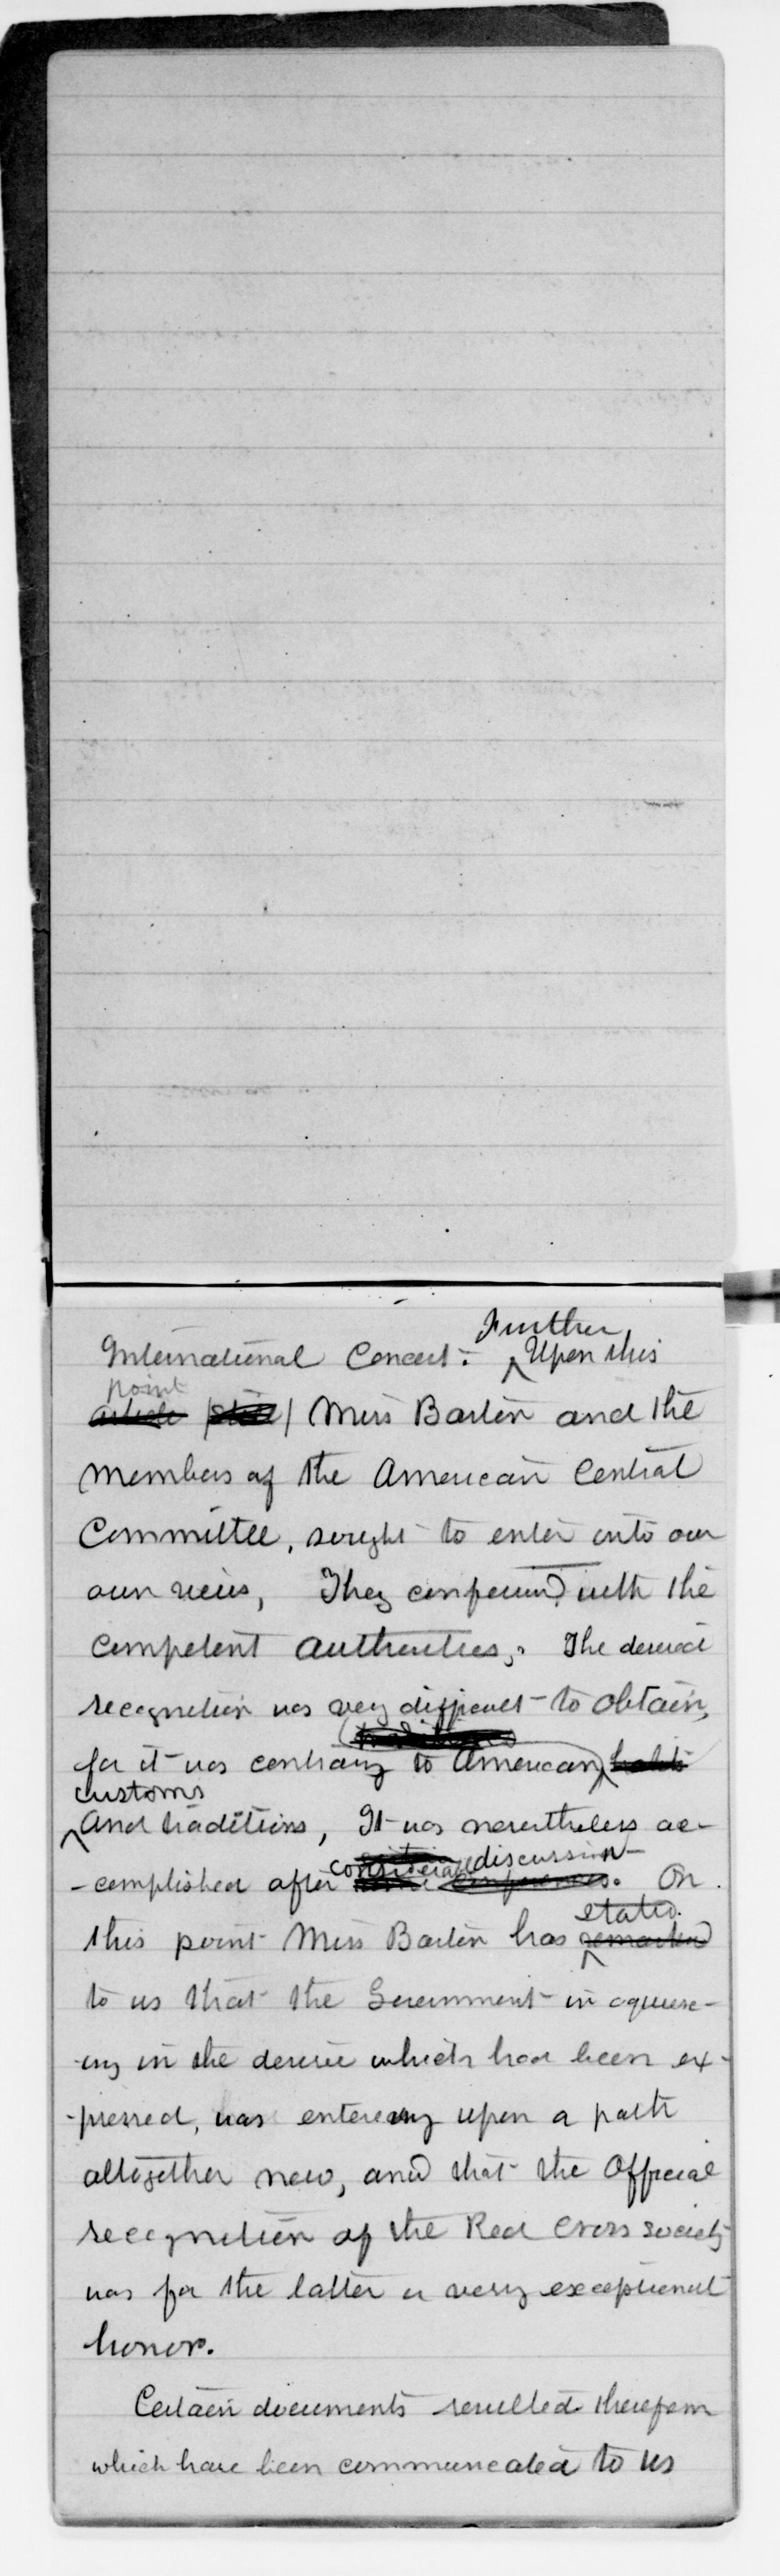 Further
International Concert. Upon this
point
article / still / Miss Barton and the
members of the American Central
Committee, sought to enter into our
own views, They conferred with the
competent authorities,. The desired
recognition was very difficult to obtain,
traditions
for it was contrary to American habits
customs
and traditions, It was nevertheless ac-
considerable discussion
-complished after some conferences. On
stated
this point Miss Barton has remarked
to us that the Government in acquiesc-
-ing in the desire which had been ex-
-pressed, was entering upon a path
altogether new, and that the official
recognition of the Red Cross society
was for the latter a very exceptional
honor.
Certain documents resulted therefrom
which have been communicated to us